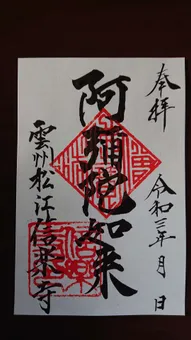 奉拝
令和三年 月 日
阿弥陀如来
雲州松江信楽寺